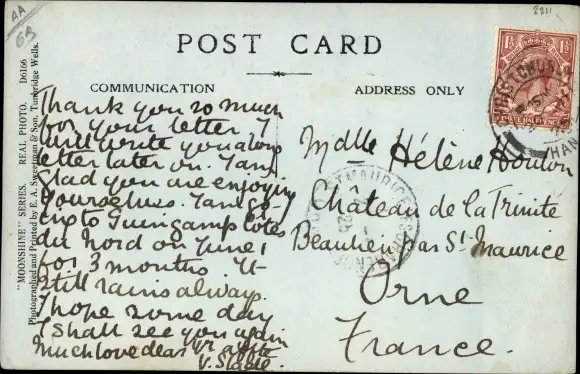 AA
65
2211
POST CARD
COMMUNICATION
ADDRESS ONLY
"MOONSHINE" SERIES. REAL PHOTO. D6166
Photographed and Printed by E. A. Sweetman & Son, Tunbridge Wells.
Thank you so much
for your letter I
will write you a long
letter later on. I am
glad you are enjoying
yourselves. I am go-
ing to Guingamp Côtes
du Nord on June 1
for 3 months It
still rains always.
I hope some day
I shall see you again
Much love dear
V. Slade.
1½ 1½
THREE HALFPENCE
BOSCOMBE
HAN
Mdlle Hélène Houlon
Château de la Trinite
Beaulieu par St. Maurice
Orne
France.
ST MAURICE